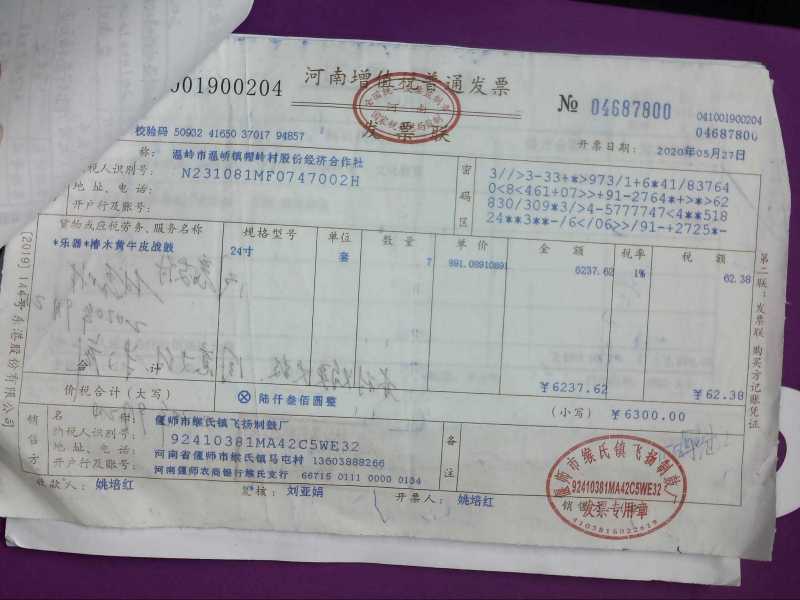 001900204
河南增值税普通发票
发票联
№ 04687800
041001900204
04687800
校验码 50932 41650 37017 94857
开票日期: 2020年05月27日
称: 温岭市温峤镇帽岭村股份经济合作社
税人识别号: N231081MF0747002H
地址、电话:
开户行及账号:
密码区
3//>3-33+*>973/1+6*41/83764
0<8<461+07>>+91-2764*+>*>62
830/309*3/>4-5777747<4**518
24**3**-/6</06>>/91-+2725*-
货物或应税劳务、服务名称 规格型号 单位 数量 单价 金额 税率 税额
*乐器*椿木黄牛皮战鼓 24寸 套 7 891.08910891 6237.62 1% 62.38
合计 ¥6237.62 ¥62.38
价税合计(大写) ⊗陆仟叁佰圆整 (小写) ¥6300.00
销售方
名称: 偃师市缑氏镇飞扬制鼓厂
纳税人识别号: 92410381MA42C5WE32
地址、电话: 河南省偃师市缑氏镇马屯村 13603888266
开户行及账号: 河南偃师农商银行缑氏支行 66715 0111 0000 0134
备注
收款人: 姚培红 复核: 刘亚娟 开票人: 姚培红
偃师市缑氏镇飞扬制鼓厂
92410381MA42C5WE32
发票专用章
4103816022619
第二联:发票联 购买方记账凭证
[2019]144号东港股份有限公司